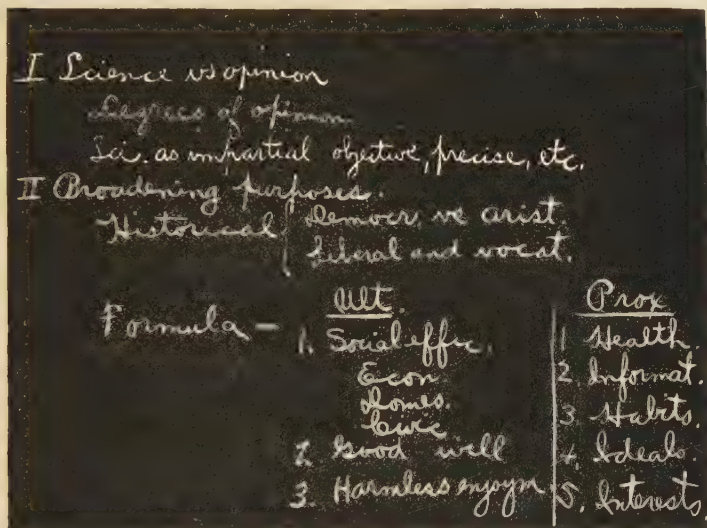 I Science vs opinion
Degrees of opinion
Sci. as impartial objective, precise, etc.
II Broadening purposes.
Historical { Democr. vs arist.
Liberal and vocat.
Formula —
Ult.
1. Social effic.
Econ
Domes.
Civic
2 Good will
3. Harmless enjoym.
Prox
1 Health.
2. Informat.
3. Habits.
4. Ideals.
5. Interests.